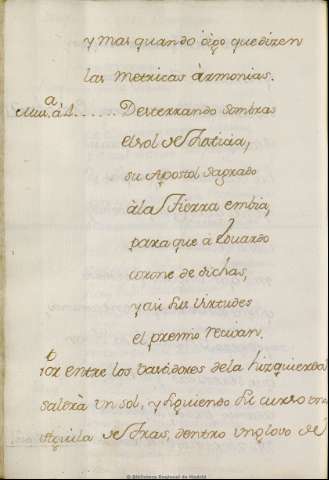 y mas quando óigo que dizen
las metricas àrmonias.
Mus.ª à 4...... Desterrando sombras
el sol de Noticia,
su Apostol sagrado
à la Tierra embia,
para que à Eduardo
corone de dichas,
y asi sus virtudes
el premio reciban.
Por entre los bastidores de la hizquierda
saldrà un sol, y siguiendo su curso una
Aguila detras, dentro un globo de
© Biblioteca Regional de Madrid